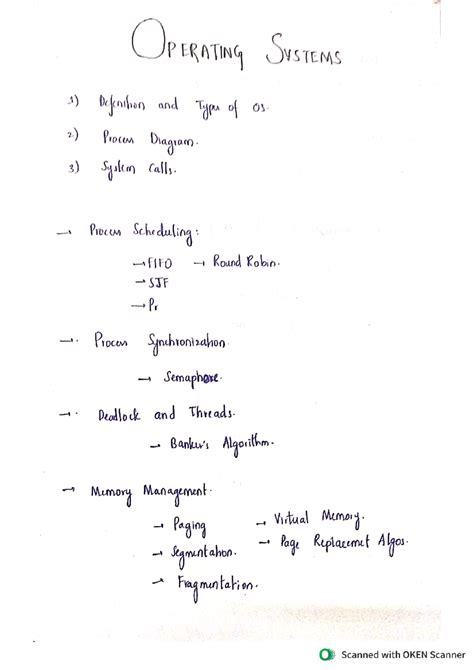 OPERATING SYSTEMS
1) Definition and Types of OS.
2) Process Diagram.
3) System Calls.
→ Process Scheduling:
→ FIFO → Round Robin.
→ SJF
→ Pr
→ Process Synchronization
→ Semaphore.
→ Deadlock and Threads.
→ Banker's Algorithm.
→ Memory Management.
→ Paging → Virtual Memory.
→ Segmentation. → Page Replacemet Algos.
→ Fragmentation.
Scanned with OKEN Scanner